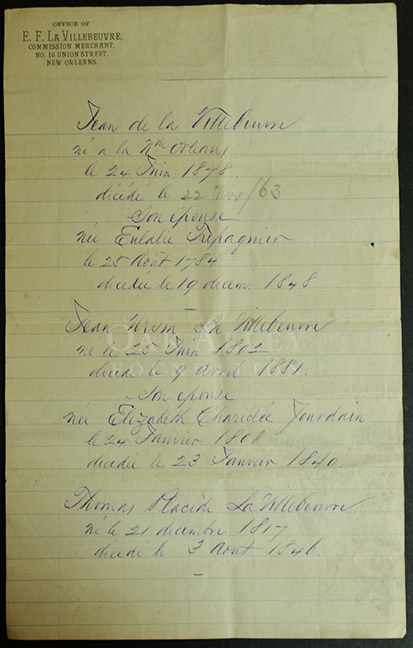 OFFICE OF
E. F. LA VILLEBEUVRE,
COMMISSION MERCHANT,
NO. 16 UNION STREET,
NEW ORLEANS.
Jean de la Villebeuvre
né a la Nlle Orleans
le 24 Juin 1878
décédé le 22 Nov/63
Son épouse
née Eulalie Trepagnier
le 25 Août 1784
décédée le 19 décem. 1848.
Jean Ursin La Villebeuvre
né le 25 Juin 1802
décédé le 9 avril 1881.
Son épouse
née Elizabeth Chariclée Jourdain
le 24 Janvier 1808
décédée le 23 Janvier 1840
Thomas Placide La Villebeuvre
né le 21 décembre 1817
décédé le 3 Août 1846.